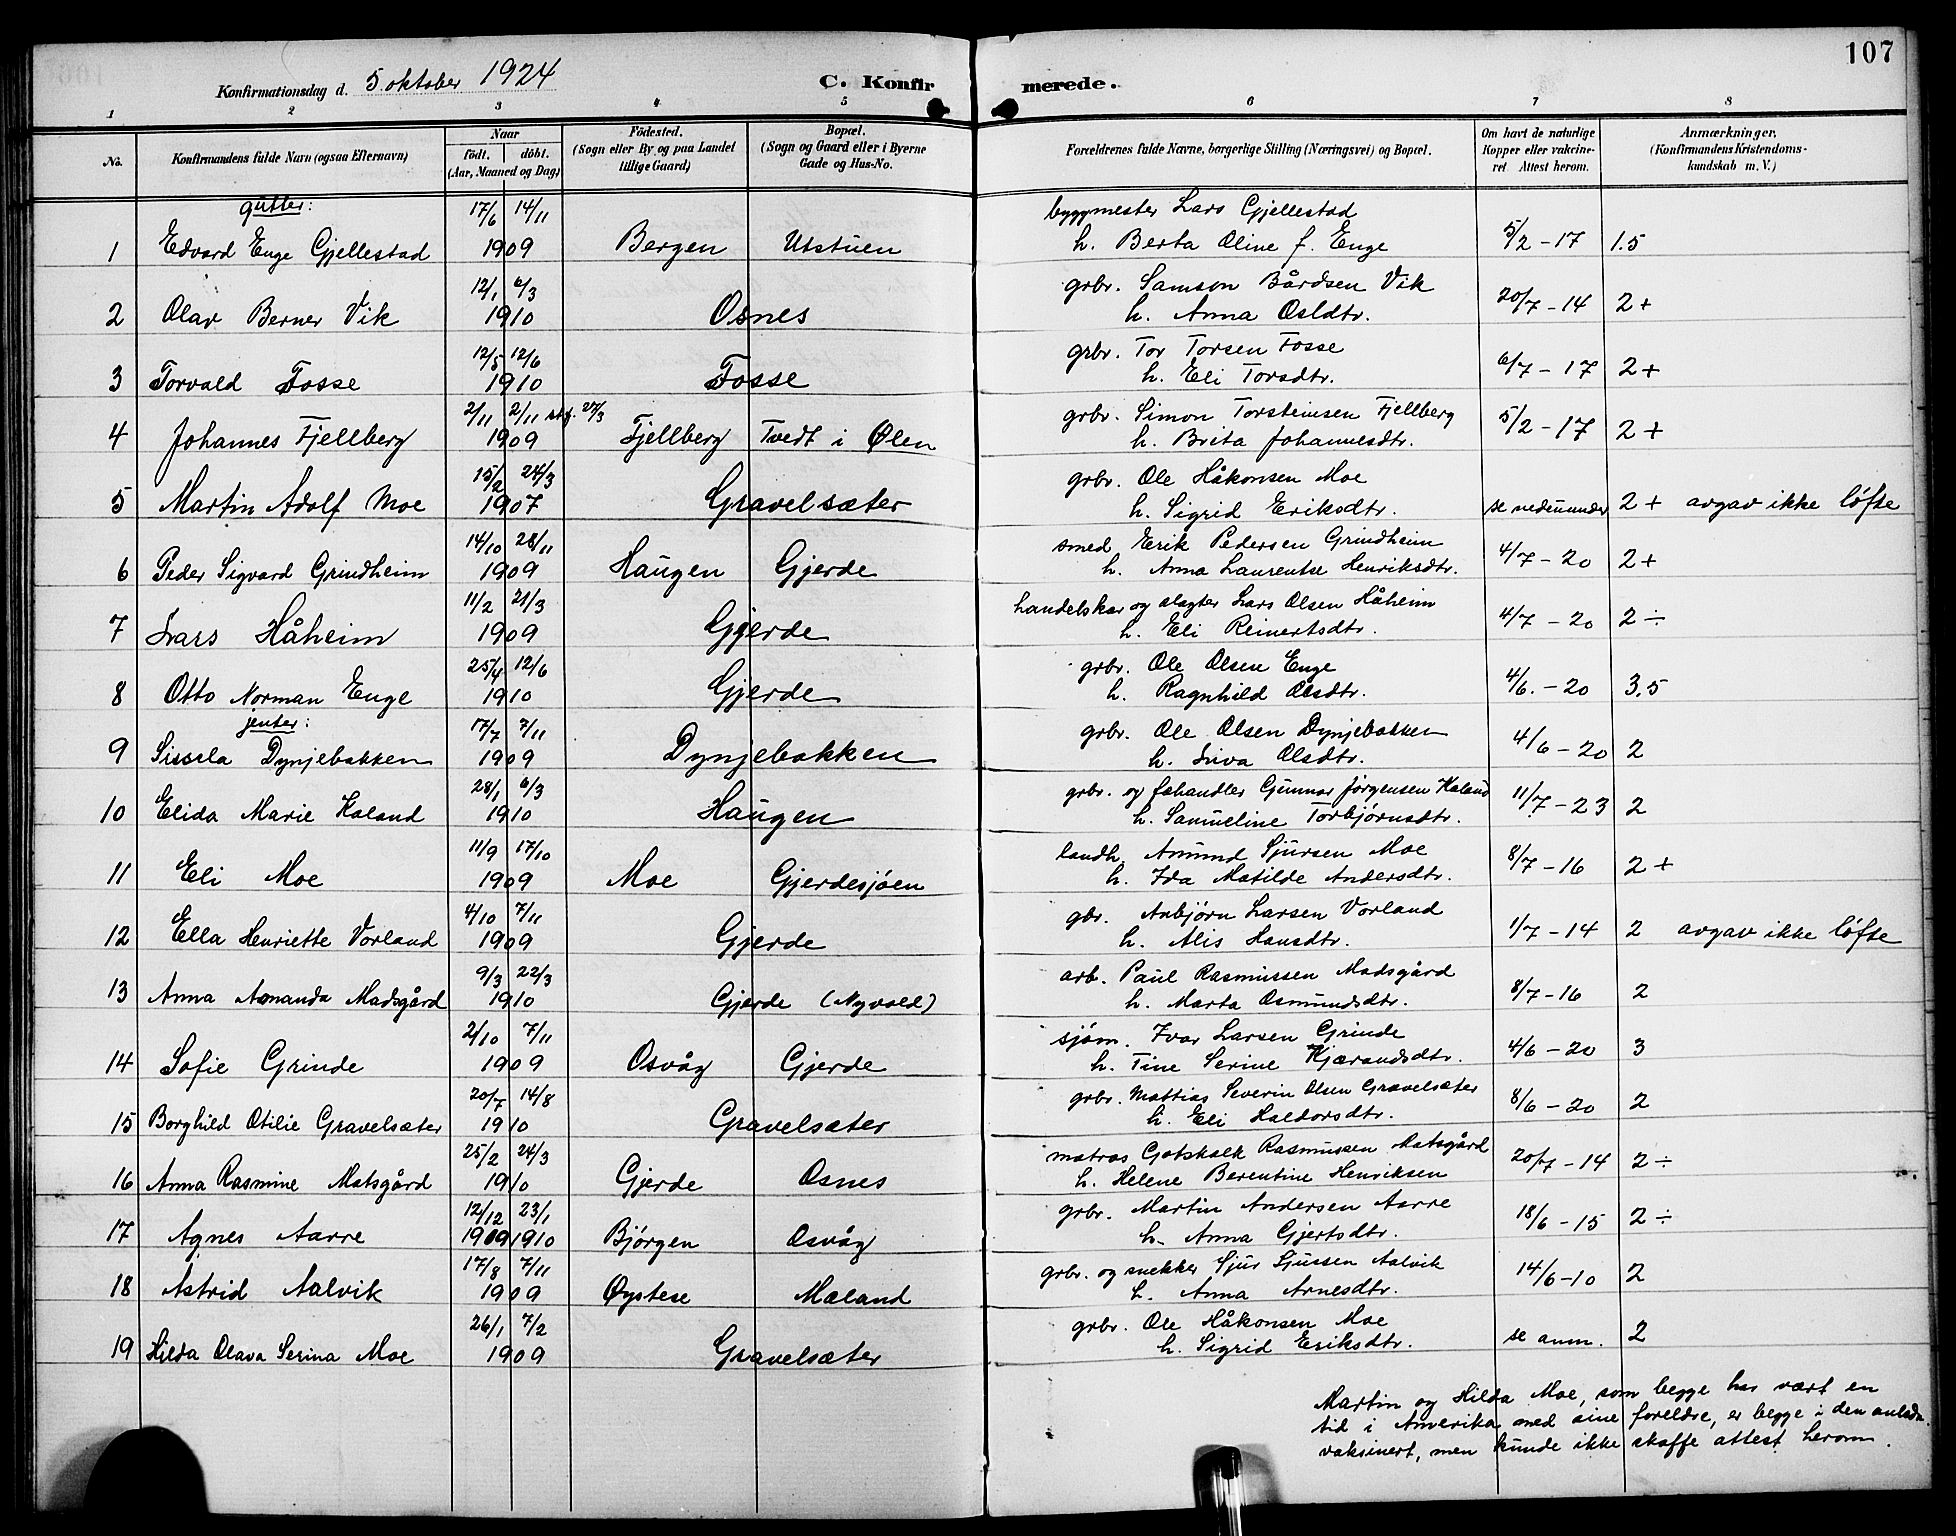 107
Konfirmationsdag d. 5. oktober 1924
C. Konfirmerede.
1 2 3 4 5 6 7 8
No.
Konfirmandens fulde Navn (ogsaa Efternavn)
Naar
født. døbt.
(Aar, Maaned og Dag)
Fødested.
(Sogn eller By og paa Landet
tillige Gaard)
Bopæl.
(Sogn og Gaard eller i Byerne
Gade og Hus-No.
Forældrenes fulde Navne, borgerlige Stilling (Næringsvei) og Bopæl.
Om havt de naturlige
Kopper eller vakcine-
ret Attest herom.
Anmærkninger.
(Konfirmandens Kristendoms-
kundskab m. V.)
gutter:
17/6 14/11 byggmester Lars Gjellestad
1 Edvard Enge Gjellestad 1909 Bergen Utstuen h. Berta Oline f. Enge 5/2 - 17 1.5
12/1 6/3 grbr. Samson Bårdsen Vik
2 Olav Berner Vik 1910 Osnes h. Anna Osldtr. 20/7 - 14 2+
12/5 12/6 grbr. Tor Torsen Fosse
3 Torvald Fosse 1910 Fosse h. Eli Torsdtr. 6/7 - 17 2+
2/11 2/11 stf. 27/3 grbr. Simon Torsteinsen Fjellberg
4 Johannes Fjellberg 1909 Fjellberg Tvedt i Ølen h. Brita Johannesdtr. 5/2 - 17 2+
15/2 24/3 grbr. Ole Håkonsen Moe
5 Martin Adolf Moe 1907 Gravelsæter h. Sigrid Eriksdtr. se nedenunder 2+ avgav ikke løfte
14/10 28/11 smed Erik Pedersen Grindheim
6 Peder Sigvard Grindheim 1909 Haugen Gjerde h. Anna Laurentse Henriksdtr. 4/7 - 20 2+
11/2 21/3 handelskar og slagter Lars Olsen Håheim
7 Lars Håheim 1909 Gjerde h. Eli Reinertsdtr. 4/7 - 20 2÷
25/4 12/6 grbr. Ole Olsen Enge
8 Otto Norman Enge 1910 Gjerde h. Ragnhild Olsdtr. 4/6. - 20 3,5
jenter:
17/7 7/11 grbr. Ole Olsen Dynjebakken
9 Sissela Dynjebakken 1909 Dynjebakken h. Siva Olsdtr. 4/6 - 20 2
28/1 6/3 grbr. og fehandler Gunnar Jørgensen Kaland
10 Elida Marie Kaland 1910 Haugen h. Samueline Torbjørnsdtr. 11/7 - 23 2
11/9 17/10 landh. Amund Sjursen Moe
11 Eli Moe 1909 Moe Gjerdesjøen h. Ida Matilde Andersdtr. 8/7 - 16 2+
4/10 7/11 gbr. Anbjørn Larsen Vorland
12 Ella Henriette Vorland 1909 Gjerde h. Alis Hansdtr. 1/7 - 14 2 avgav ikke løfte
9/3 22/3 arb. Paul Rasmussen Madsgård
13 Anna Amanda Madsgård 1910 Gjerde (Nyvold) h. Marta Osmundsdtr. 8/7 - 16 2
2/10 7/11 sjøm. Ivar Larsen Grinde
14 Sofie Grinde 1909 Osvåg Gjerde h. Tine Serine Kjærandsdtr. 4/6 - 20 3
20/7 14/8 grbr. Mattias Severin Olsen Gravelsæter
15 Borghild Otilie Gravelsæter 1910 Gravelsæter h. Eli Haldorsdtr. 8/6 - 20 2
25/2 24/3 matros Gotskalk Rasmussen Matsgård
16 Anna Rasmine Matsgård 1910 Gjerde Osnes h. Helene Berentine Henriksen 20/7 - 14 2÷
12/12 23/1 grbr. Martin Andersen Aarre
17 Agnes Aarre 1909 1910 Bjørgen Osvåg h. Anna Gjertsdtr. 18/6 - 15 2÷
17/8 7/11 grbr. og snekker Sjur Sjussen Aalvik
18 Astrid Aalvik 1909 Øystese Mæland h. Anna Arnesdtr. 14/6 - 10 2
26/1 7/2 grbr. Ole Håkonsen Moe
19 Hilda Olava Serina Moe 1909 Gravelsæter h. Sigrid Eriksdtr. se anm. 2
Martin og Hilda Moe, som begge har vært en
tid i Amerika med sine foreldre, er begge i den anledn.
vaksinert, men kunde ikke skaffe attest herom.